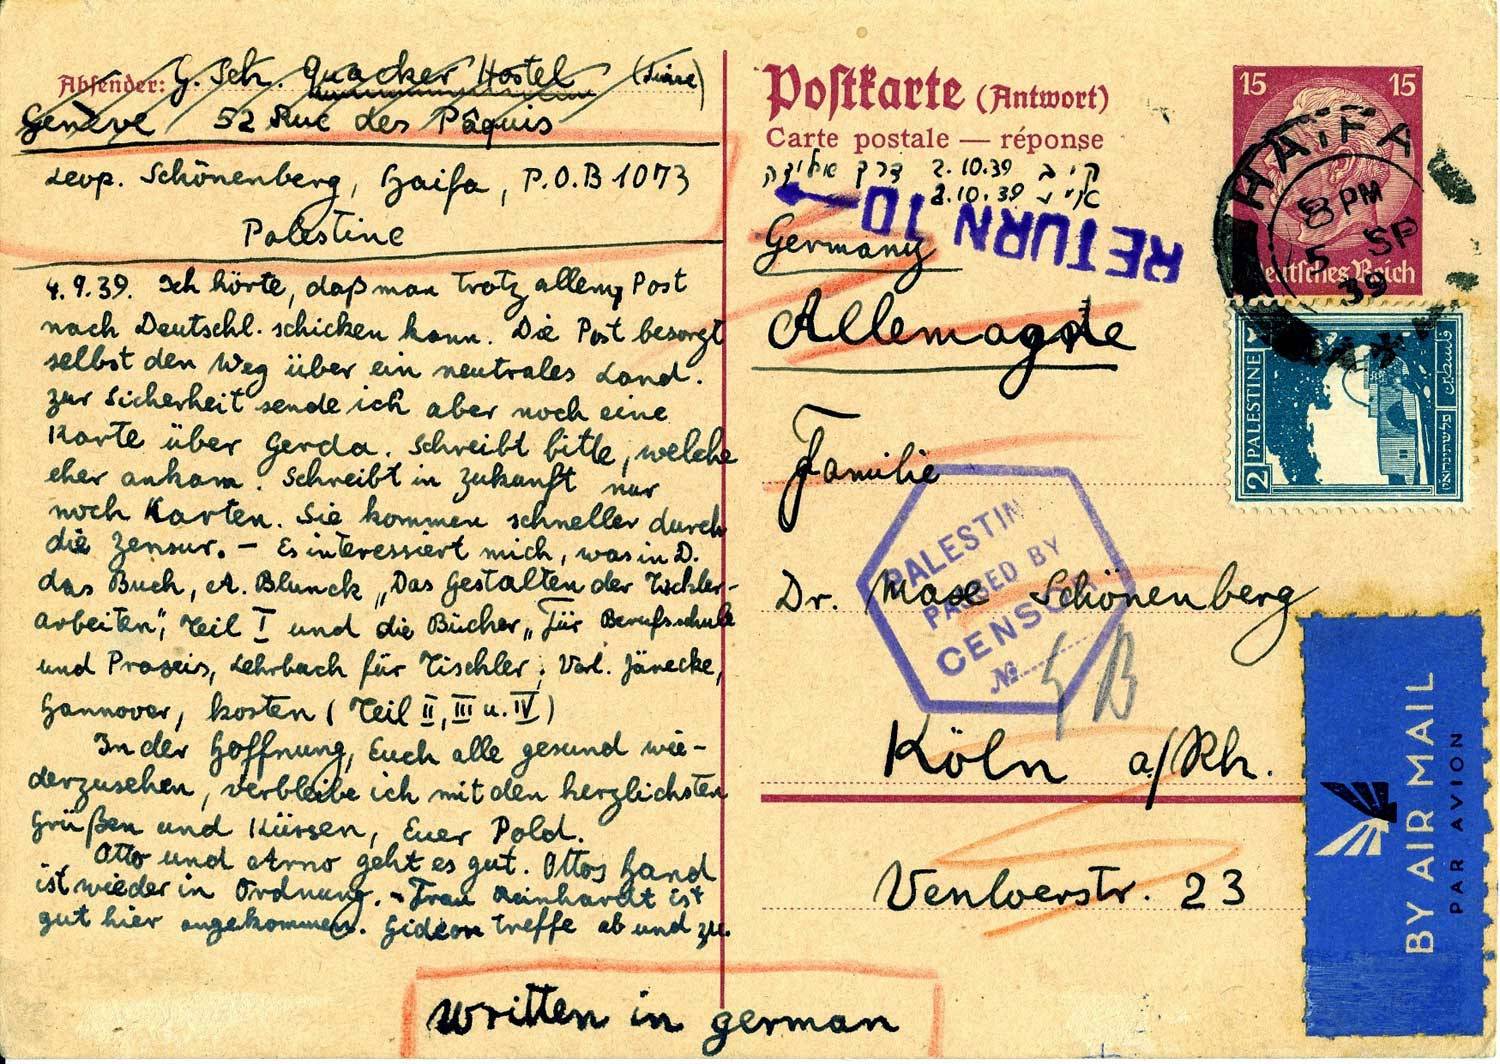 Absender: G. Sch. Quacker Hostel (Suisse)
Genève 52 Rue des Pâquis
Leop. Schönenberg, Haifa, P.O.B 1073
Palestine
4.9.39. Ich hörte, daß man trotz allem Post
nach Deutschl. schicken kann. Die Post besorgt
selbst den Weg über ein neutrales Land.
Zur Sicherheit sende ich aber noch eine
Karte über Gerda. Schreibt bitte, welche
eher ankam. Schreibt in Zukunft nur
noch Karten. Sie kommen schneller durch
die Zensur. – Es interessiert mich, was in D.
das Buch, A. Blunck „Das Gestalten der Tischler-
arbeiten", Teil I und die Bücher „Für Berufsschule
und Praxis, Lehrbuch für Tischler, Verl. Jänecke,
Hannover, kosten (Teil II, III u. IV)
In der Hoffnung, Euch alle gesund wie-
derzusehen, verbleibe ich mit den herzlichsten
Grüßen und Küssen, Euer Pold.
Otto und Arno geht es gut. Ottos Hand
ist wieder in Ordnung. – Frau Reinhardt ist
gut hier angekommen. Gideon treffe ab und zu.
written in german
Postkarte (Antwort)
Carte postale — réponse
2.10.39
2.10.39
RETURN TO
Germany
Allemagne
Familie
Dr. Max Schönenberg
Köln a/Rh.
Venloerstr. 23
PALESTIN
PASSED BY
CENSOR
№
15 15
Deutsches Reich
HAIFA
8 PM
5 SP
39
2 PALESTINE
فلسطين
פלשתינה א״י
BY AIR MAIL
PAR AVION